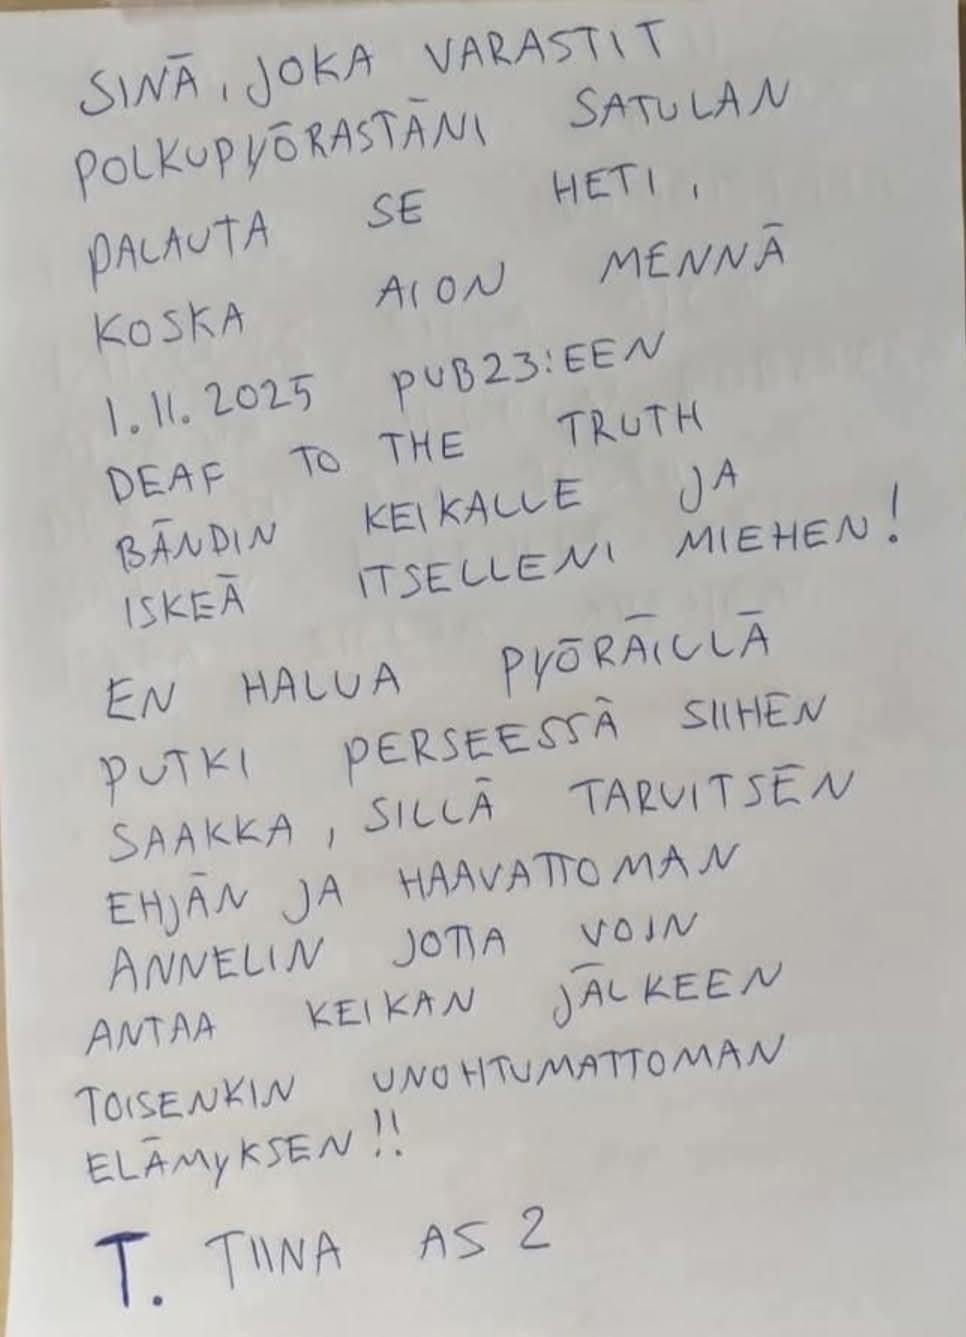 SINÄ, JOKA VARASTIT
POLKUPYÖRASTÄNI SATULAN
PALAUTA SE HETI,
KOSKA AION MENNÄ
1.11.2025 PUB23:EEN
DEAF TO THE TRUTH
BÄNDIN KEIKALLE JA
ISKEÄ ITSELLENI MIEHEN!
EN HALUA PYÖRÄILLÄ
PUTKI PERSEESSÄ SIIHEN
SAAKKA, SILLÄ TARVITSEN
EHJÄN JA HAAVATTOMAN
ANNELIN JOTTA VOIN
ANTAA KEIKAN JÄLKEEN
TOISENKIN UNOHTUMATTOMAN
ELÄMYKSEN!!
T. TIINA AS 2